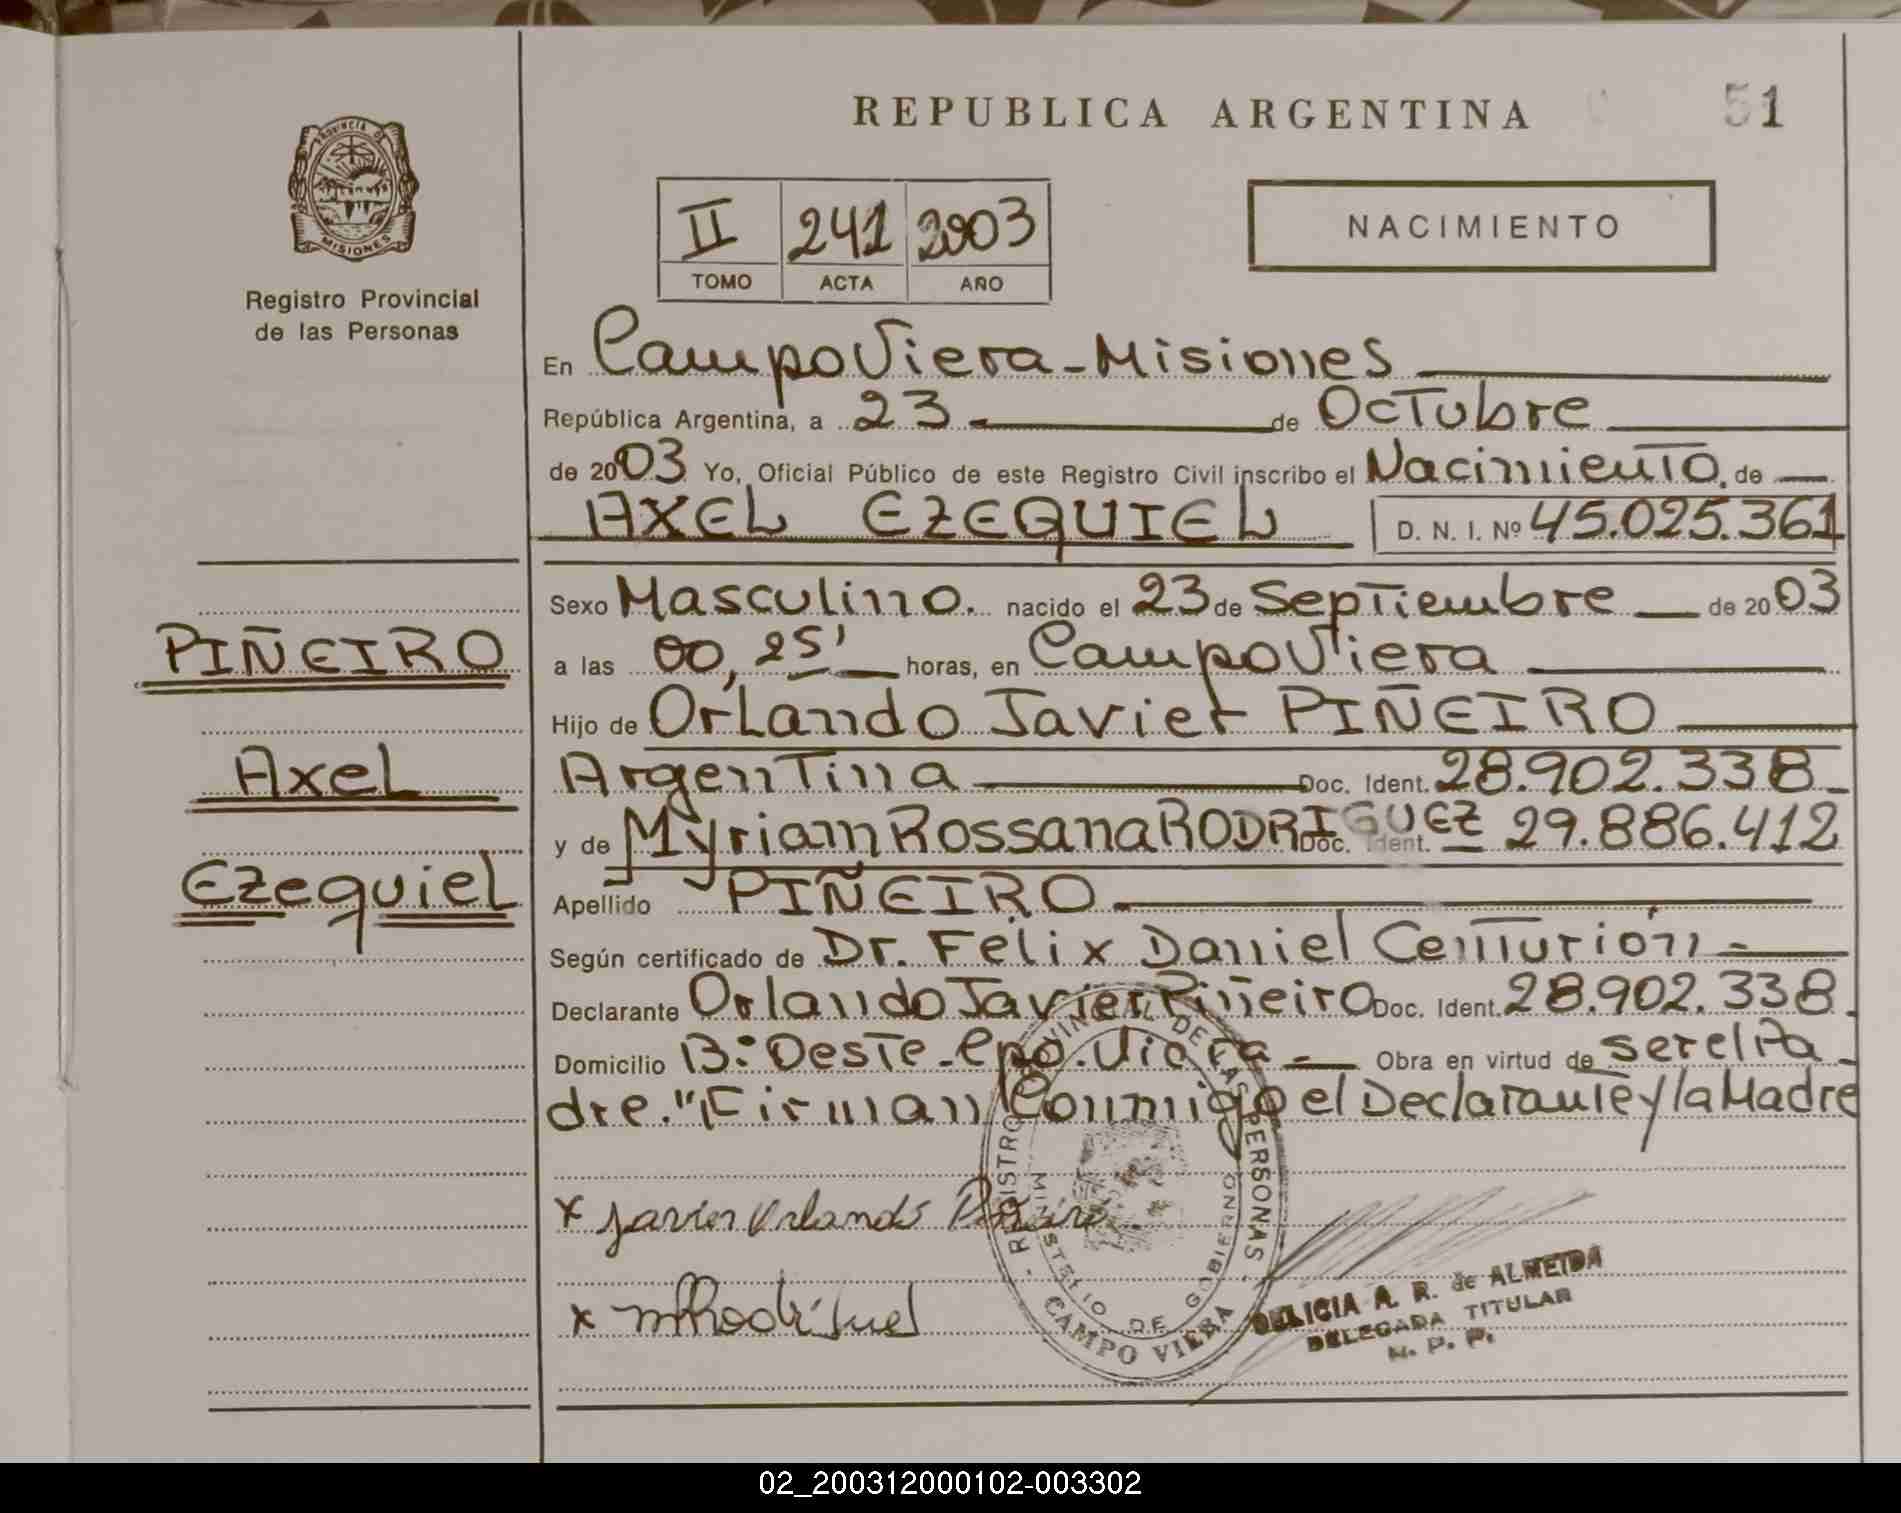 REPUBLICA ARGENTINA
51
PROVINCIA DE
MISIONES
Registro Provincial
de las Personas
II 241 2003
TOMO ACTA AÑO
NACIMIENTO
En Campo Viera - Misiones
República Argentina, a 23 de Octubre
de 2003 Yo, Oficial Público de este Registro Civil inscribo el Nacimiento de
AXEL EZEQUIEL D. N. I. Nº 45.025.361
Sexo Masculino. nacido el 23 de Septiembre de 2003
a las 00,25' horas, en Campo Viera
Hijo de Orlando Javier PIÑEIRO
Argentina Doc. Ident. 28.902.338
y de Myriam Rossana RODRIGUEZ Doc. Ident. 29.886.412
Apellido PIÑEIRO
Según certificado de Dr. Felix Daniel Centurión
Declarante Orlando Javier Piñeiro Doc. Ident. 28.902.338
Domicilio B: Oeste - Cpo. Viera Obra en virtud de ser el Pa
dre." Firman Conmigo el Declarante y la Madre
PIÑEIRO
Axel
Ezequiel
x Javier Orlando Piñeiro
x MRodríguez
REGISTRO PROVINCIAL DE LAS PERSONAS
MINISTERIO DE GOBIERNO
CAMPO VIERA
DELICIA A. R. de ALMEIDA
DELEGADA TITULAR
02_200312000102-003302